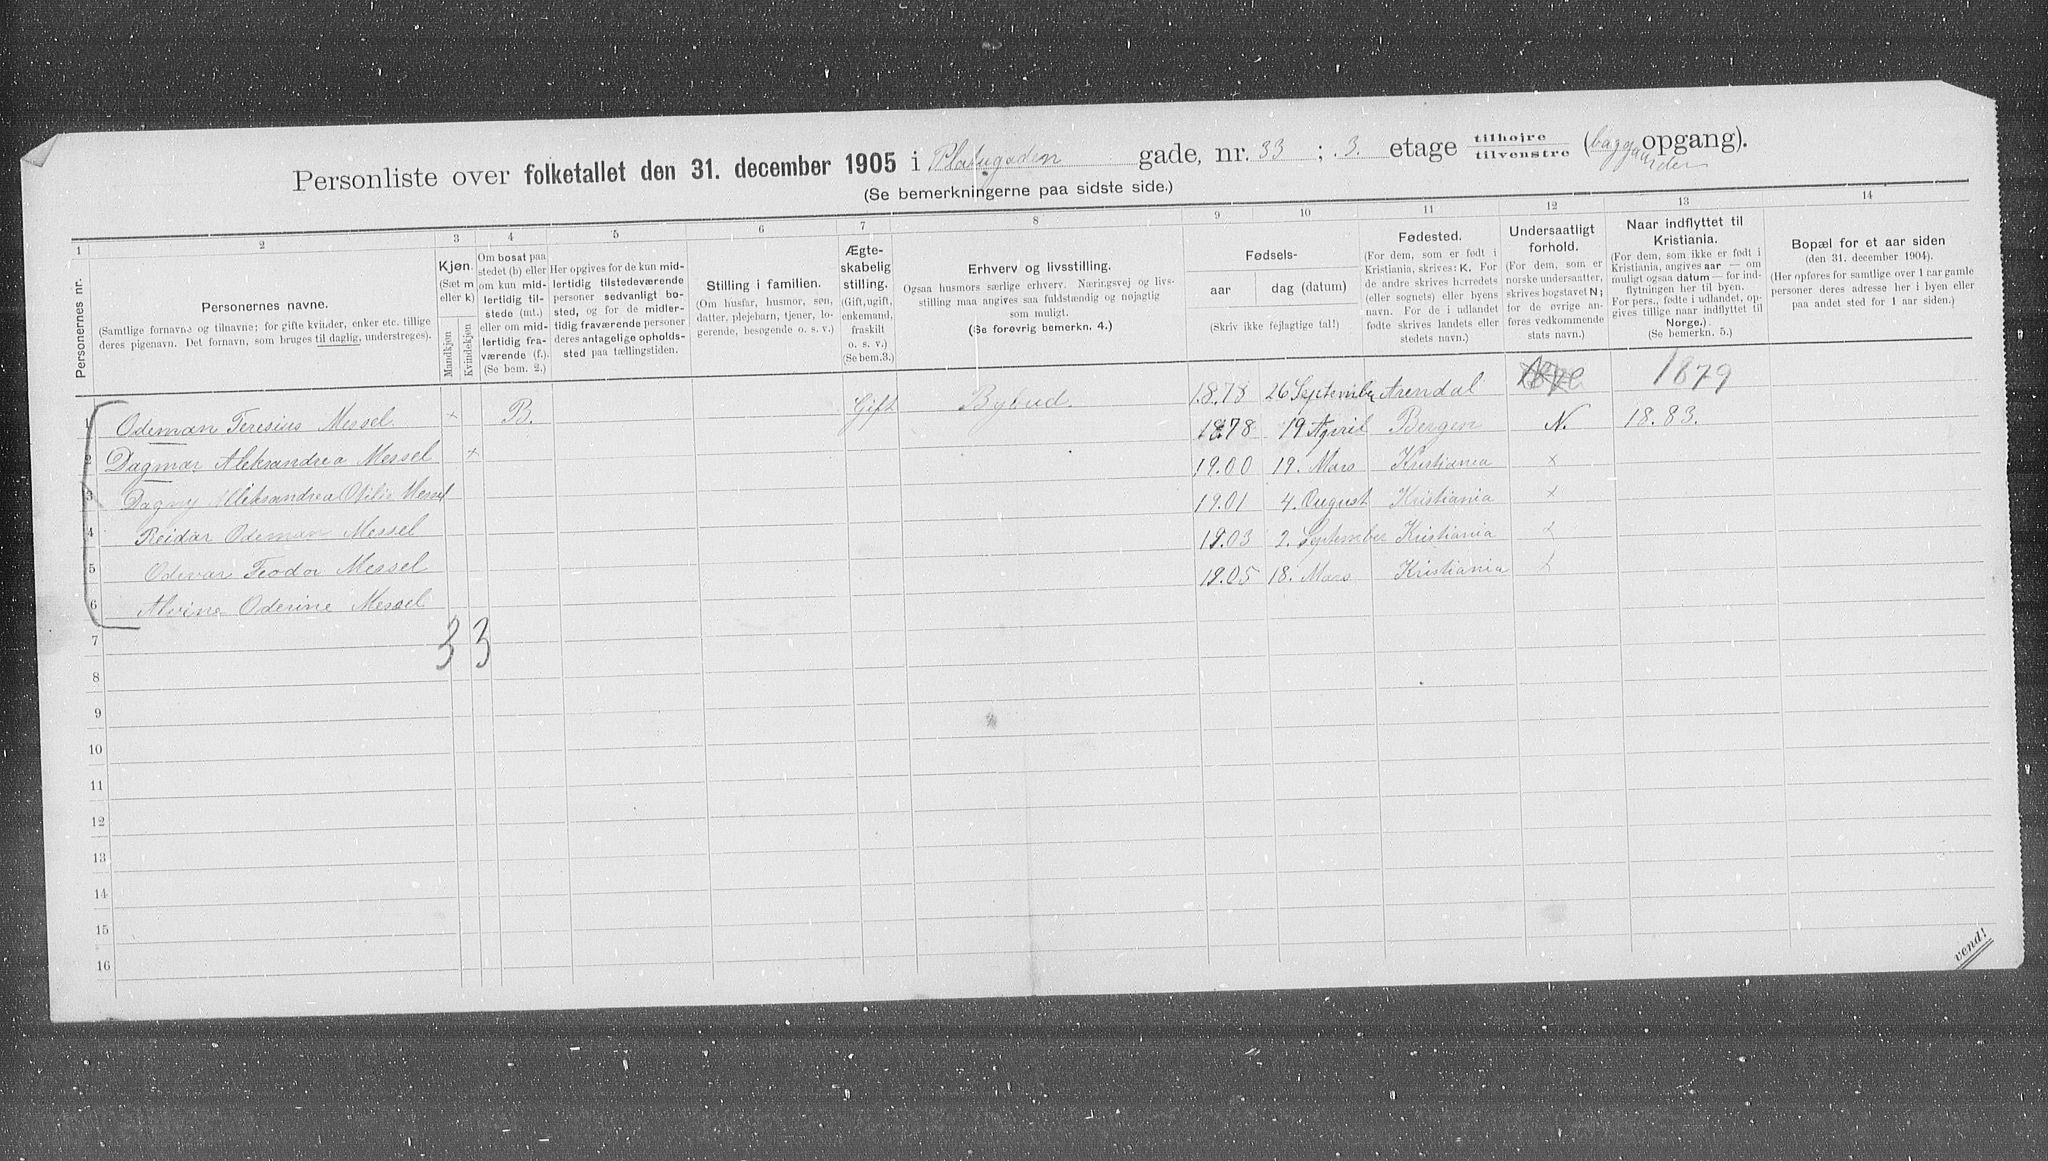 Personliste over folketallet den 31. december 1905 i Platugaden gade, nr. 33 ; 3. etage tilhøjre tilvenstre (baggaarden opgang).
(Se bemerkningerne paa sidste side.)
1 2 3 4 5 6 7 8 9 10 11 12 13 14
Personernes nr.
Personernes navne.
(Samtlige fornavne og tilnavne; for gifte kvinder, enker etc. tillige
deres pigenavn. Det fornavn, som bruges til daglig, understreges).
Kjøn.
(Sæt m
eller k)
Mandkjøn
Kvindekjøn
Om bosat paa
stedet (b) eller
om kun mid-
lertidig til-
stede (mt.)
eller om mid-
lertidig fra-
værende (f.).
(Se bem. 2.)
Her opgives for de kun mid-
lertidig tilstedeværende
personer sedvanlig bo-
sted, og for de midler-
tidig fraværende personer
deres antagelige opholds-
sted paa tællingstiden.
Stilling i familien.
(Om husfar, husmor, søn,
datter, plejebarn, tjener, lo-
gerende, besøgende o. s. v.)
Ægte-
skabelig
stilling.
(Gift, ugift,
enkemand,
fraskilt
o. s. v.)
(Se bem.3.)
Erhverv og livsstilling.
Ogsaa husmors særlige erhverv. Næringsvej og livs-
stilling maa angives saa fuldstændig og nøjagtig
som muligt.
(Se forøvrig bemerkn. 4.)
Fødsels-
aar dag (datum)
(Skriv ikke fejlagtige tal!)
Fødested.
(For dem, som er født i
Kristiania, skrives: K. For
de andre skrives herredets
(eller sognets) eller byens
navn. For de i udlandet
fødte skrives landets eller
stedets navn.)
Undersaatligt
forhold.
(For dem, som er
norske undersaatter,
skrives bogstavet N;
for de øvrige an-
føres vedkommende
stats navn.)
Naar indflyttet til
Kristiania.
(For dem, som ikke er født i
Kristiania, angives aar — om
muligt ogsaa datum — for ind-
flytningen her til byen.
For pers., fødte i udlandet, op-
gives tillige naar indflyttet til
Norge.)
(Se bemerkn. 5.)
Bopæl for et aar siden
(den 31. december 1904).
(Her opføres for samtlige over 1 aar gamle
personer deres adresse her i byen eller
paa andet sted for 1 aar siden.)
1 Odeman Teresius Messel. × B. Gift Bybud. 1878 26 September Arendal 1879
2 Dagmar Aleksandrea Messel × 1878 19 April Bergen N. 1883.
3 Dagny Aleksandrea Otilie Messel 1900 19. Mars Kristiania ×
4 Reidar Odeman Messel 1901 4. August Kristiania ×
5 Odevar Teodor Messel 1903 2. September Kristiania ×
6 Alvine Oderine Messel 1905 18. Mars Kristiania ×
7 3 3
8
9
10
11
12
13
14
15
16
vend!